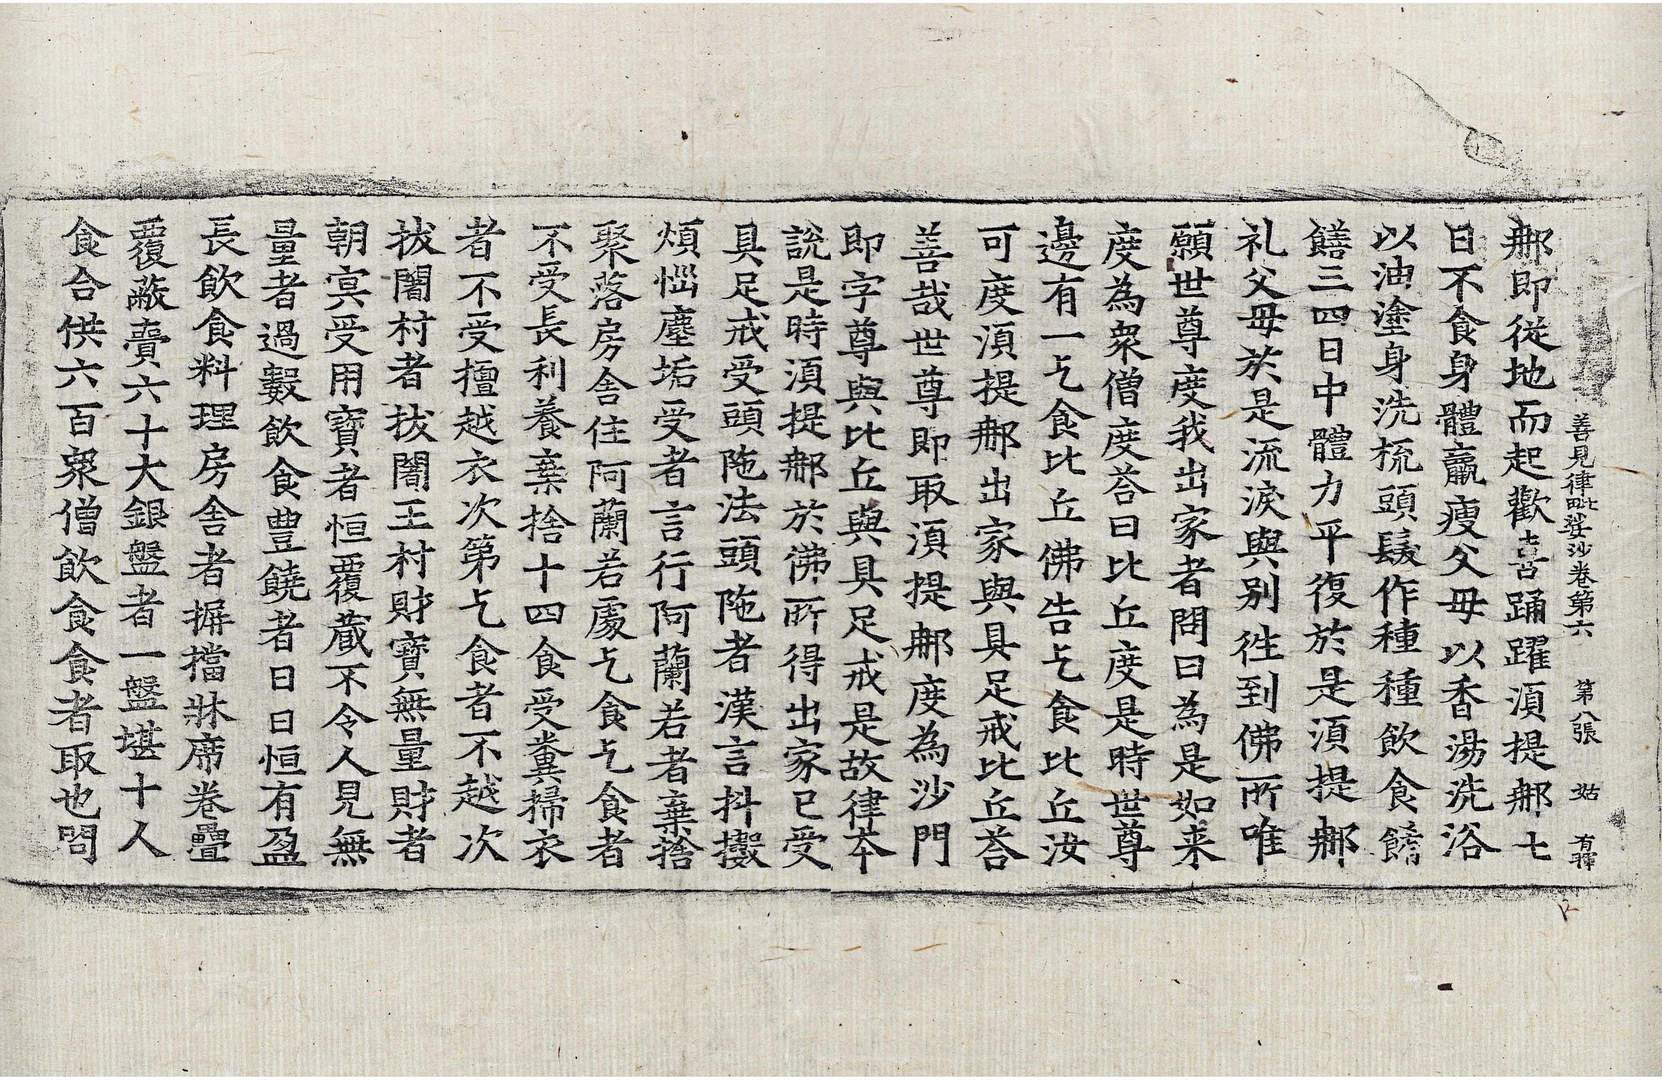 善見律毗婆沙卷第六 第八張 姑 有暉
䣮即從地而起歡喜踊躍湏提䣮七
日不食身體羸瘦父母以香湯洗浴
以油塗身洗梳頭髮作種種飲食餚
饍三四日中體力平復於是湏提䣮
礼父母於是流淚與别徃到佛所唯
願世尊度我出家者問曰為是如来
度為衆僧度荅曰比丘度是時世尊
邊有一乞食比丘佛告乞食比丘汝
可度湏提䣮出家與具足戒比丘荅
善哉世尊即取湏提䣮度為沙門
即字尊與比丘與具足戒是故律夲
說是時湏提䣮於佛所得出家已受
具足戒受頭陁法頭陁者漢言抖擻
煩惱塵垢受者言行阿蘭若者棄捨
聚落房舍住阿蘭若處乞食乞食者
不受長利養棄捨十四食受糞掃衣
者不受檀越衣次第乞食者不越次
拔闍村者拔闍王村財寶無量財者
朝㝠受用寶者恒覆藏不令人見無
量者過數飲食豊饒者日日恒有盈
長飲食料理房舍者摒擋牀席卷疊
覆蔽賷六十大銀盤者一盤堪十人
食合供六百衆僧飲食食者取也問